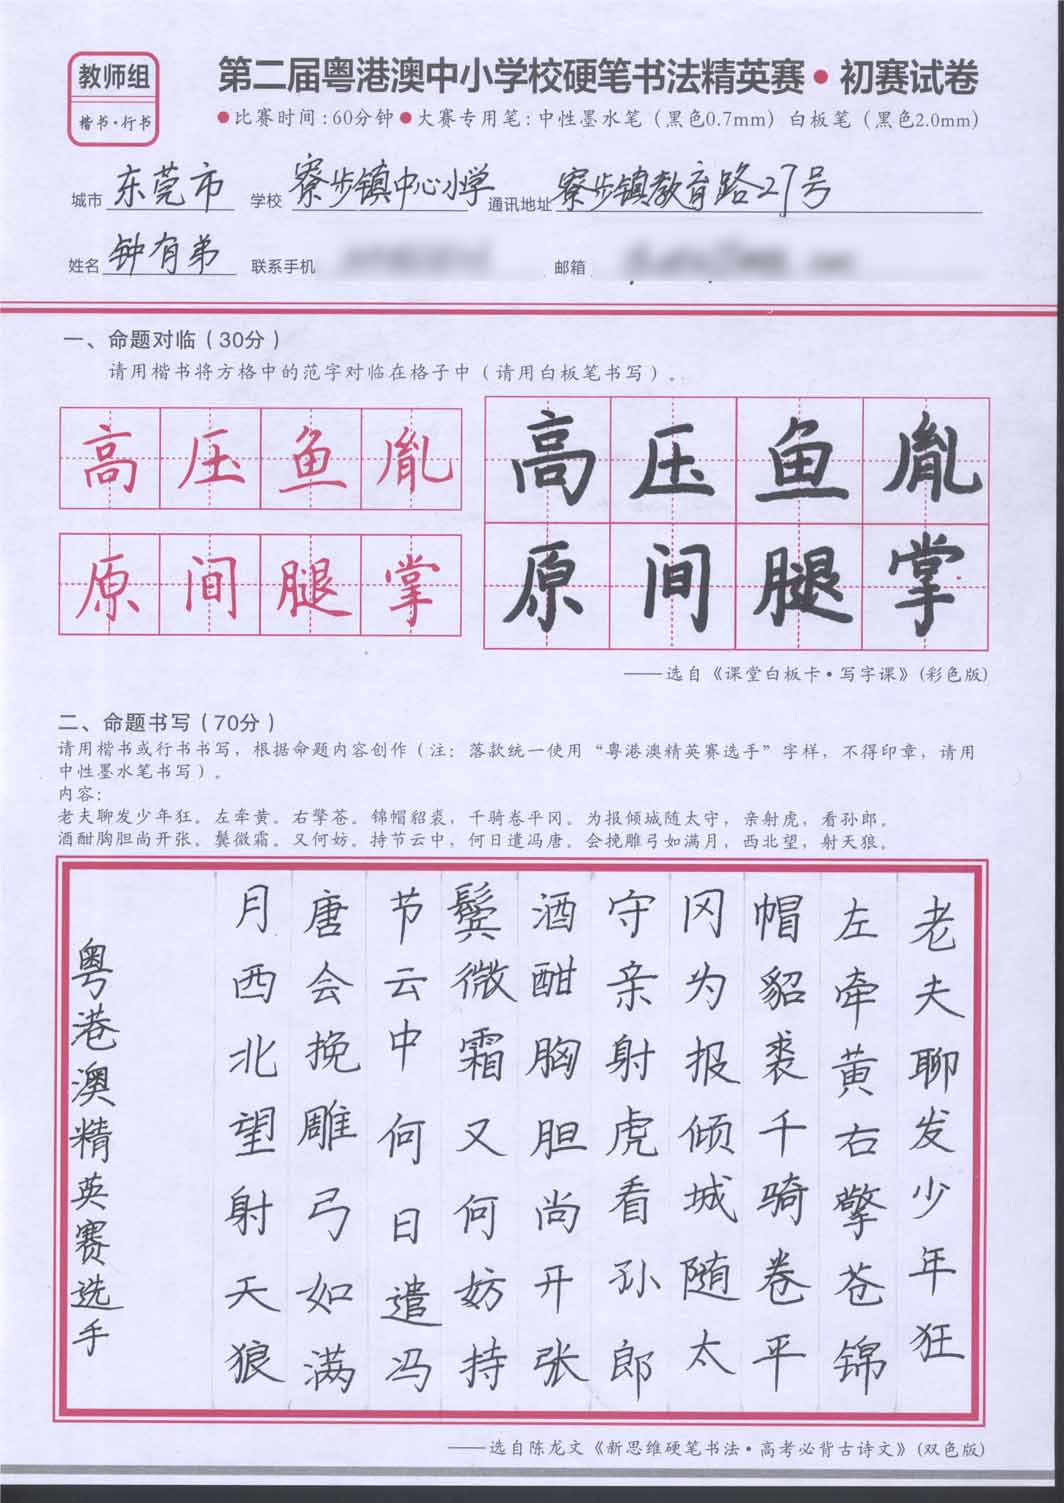 教师组
楷书·行书
第二届粤港澳中小学校硬笔书法精英赛·初赛试卷
●比赛时间:60分钟●大赛专用笔:中性墨水笔（黑色0.7mm）白板笔（黑色2.0mm）
城市 东莞市 学校 寮步镇中心小学 通讯地址 寮步镇教育路27号
姓名 钟有弟 联系手机 邮箱
一、命题对临（30分）
请用楷书将方格中的范字对临在格子中（请用白板笔书写）。
高压鱼胤
原间腿掌
高压鱼胤
原间腿掌
——选自《课堂白板卡·写字课》(彩色版)
二、命题书写（70分）
请用楷书或行书书写，根据命题内容创作（注：落款统一使用“粤港澳精英赛选手”字样，不得印章，请用
中性墨水笔书写）。
内容：
老夫聊发少年狂。左牵黄。右擎苍。锦帽貂裘，千骑卷平冈。为报倾城随太守，亲射虎，看孙郎。
酒酣胸胆尚开张。鬓微霜。又何妨。持节云中，何日遣冯唐。会挽雕弓如满月，西北望，射天狼。
老夫聊发少年狂
左牵黄右擎苍锦
帽貂裘千骑卷平
冈为报倾城随太
守亲射虎看孙郎
酒酣胸胆尚开张
鬓微霜又何妨持
节云中何日遣冯
唐会挽雕弓如满
月西北望射天狼
粤港澳精英赛选手
——选自陈龙文《新思维硬笔书法·高考必背古诗文》(双色版)